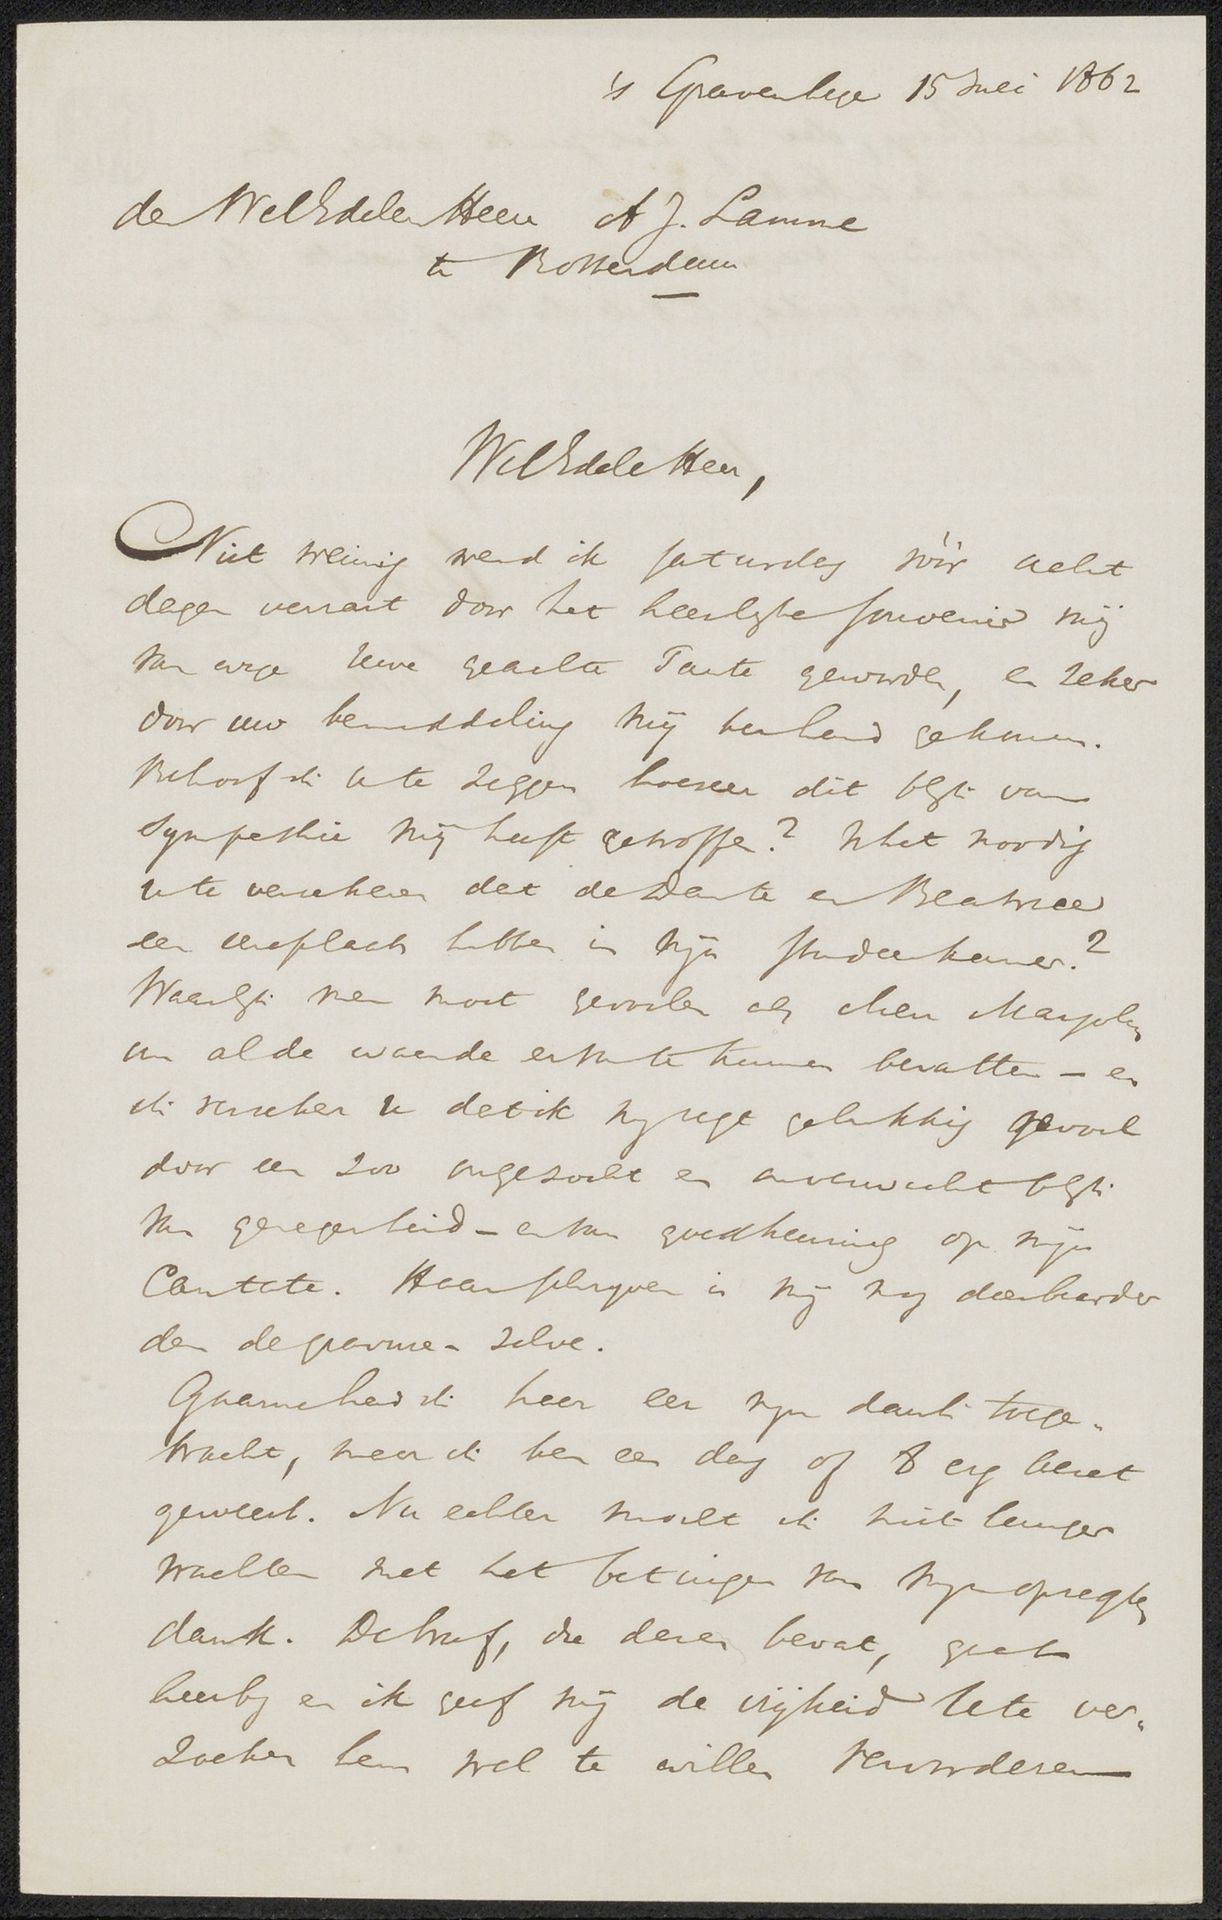 's Gravenhage 15 Mei 1862
den WelEdelen Heer A J. Lamme
te Rotterdam
WelEdele Heer,
Niet weinig werd ik saturdag vóór acht
dagen verrast door het heerlyke souvenir mij
van wege Uwe geachte Tante geworden, en zeker
door uw bemiddeling mij ter hand gekomen.
Behoef ik U te zeggen hoezeer dit blijk van
sympathie mij heeft getroffen? Is het noodig
U te verzekeren dat de Dante en Beatrice
een eereplaats hebben in mijn studeerkamer?
Waarlijk men moet gevoelen als Mevr Marjolin
om al de waarde er van te kunnen bevatten – en
ik verzeker U dat ik my regt gelukkig gevoel
door een zoo ongezocht en onverwacht blijk
van genegenheid – en van goedkeuring op mijn
Cantate. Haar schryven is mij nog dierbaarder
dan de gravure – zelve.
Gaarne had ik haar eer myn dank toege-
bracht, maar ik ben een dag of 8 erg bezet
geweest. Nu echter mocht ik niet langer
wachten met het betuigen van myn opregten
dank. De brief, die dezen bevat, gaat
hierby en ik geef mij de vrijheid U te ver-
zoeken hem wel te willen